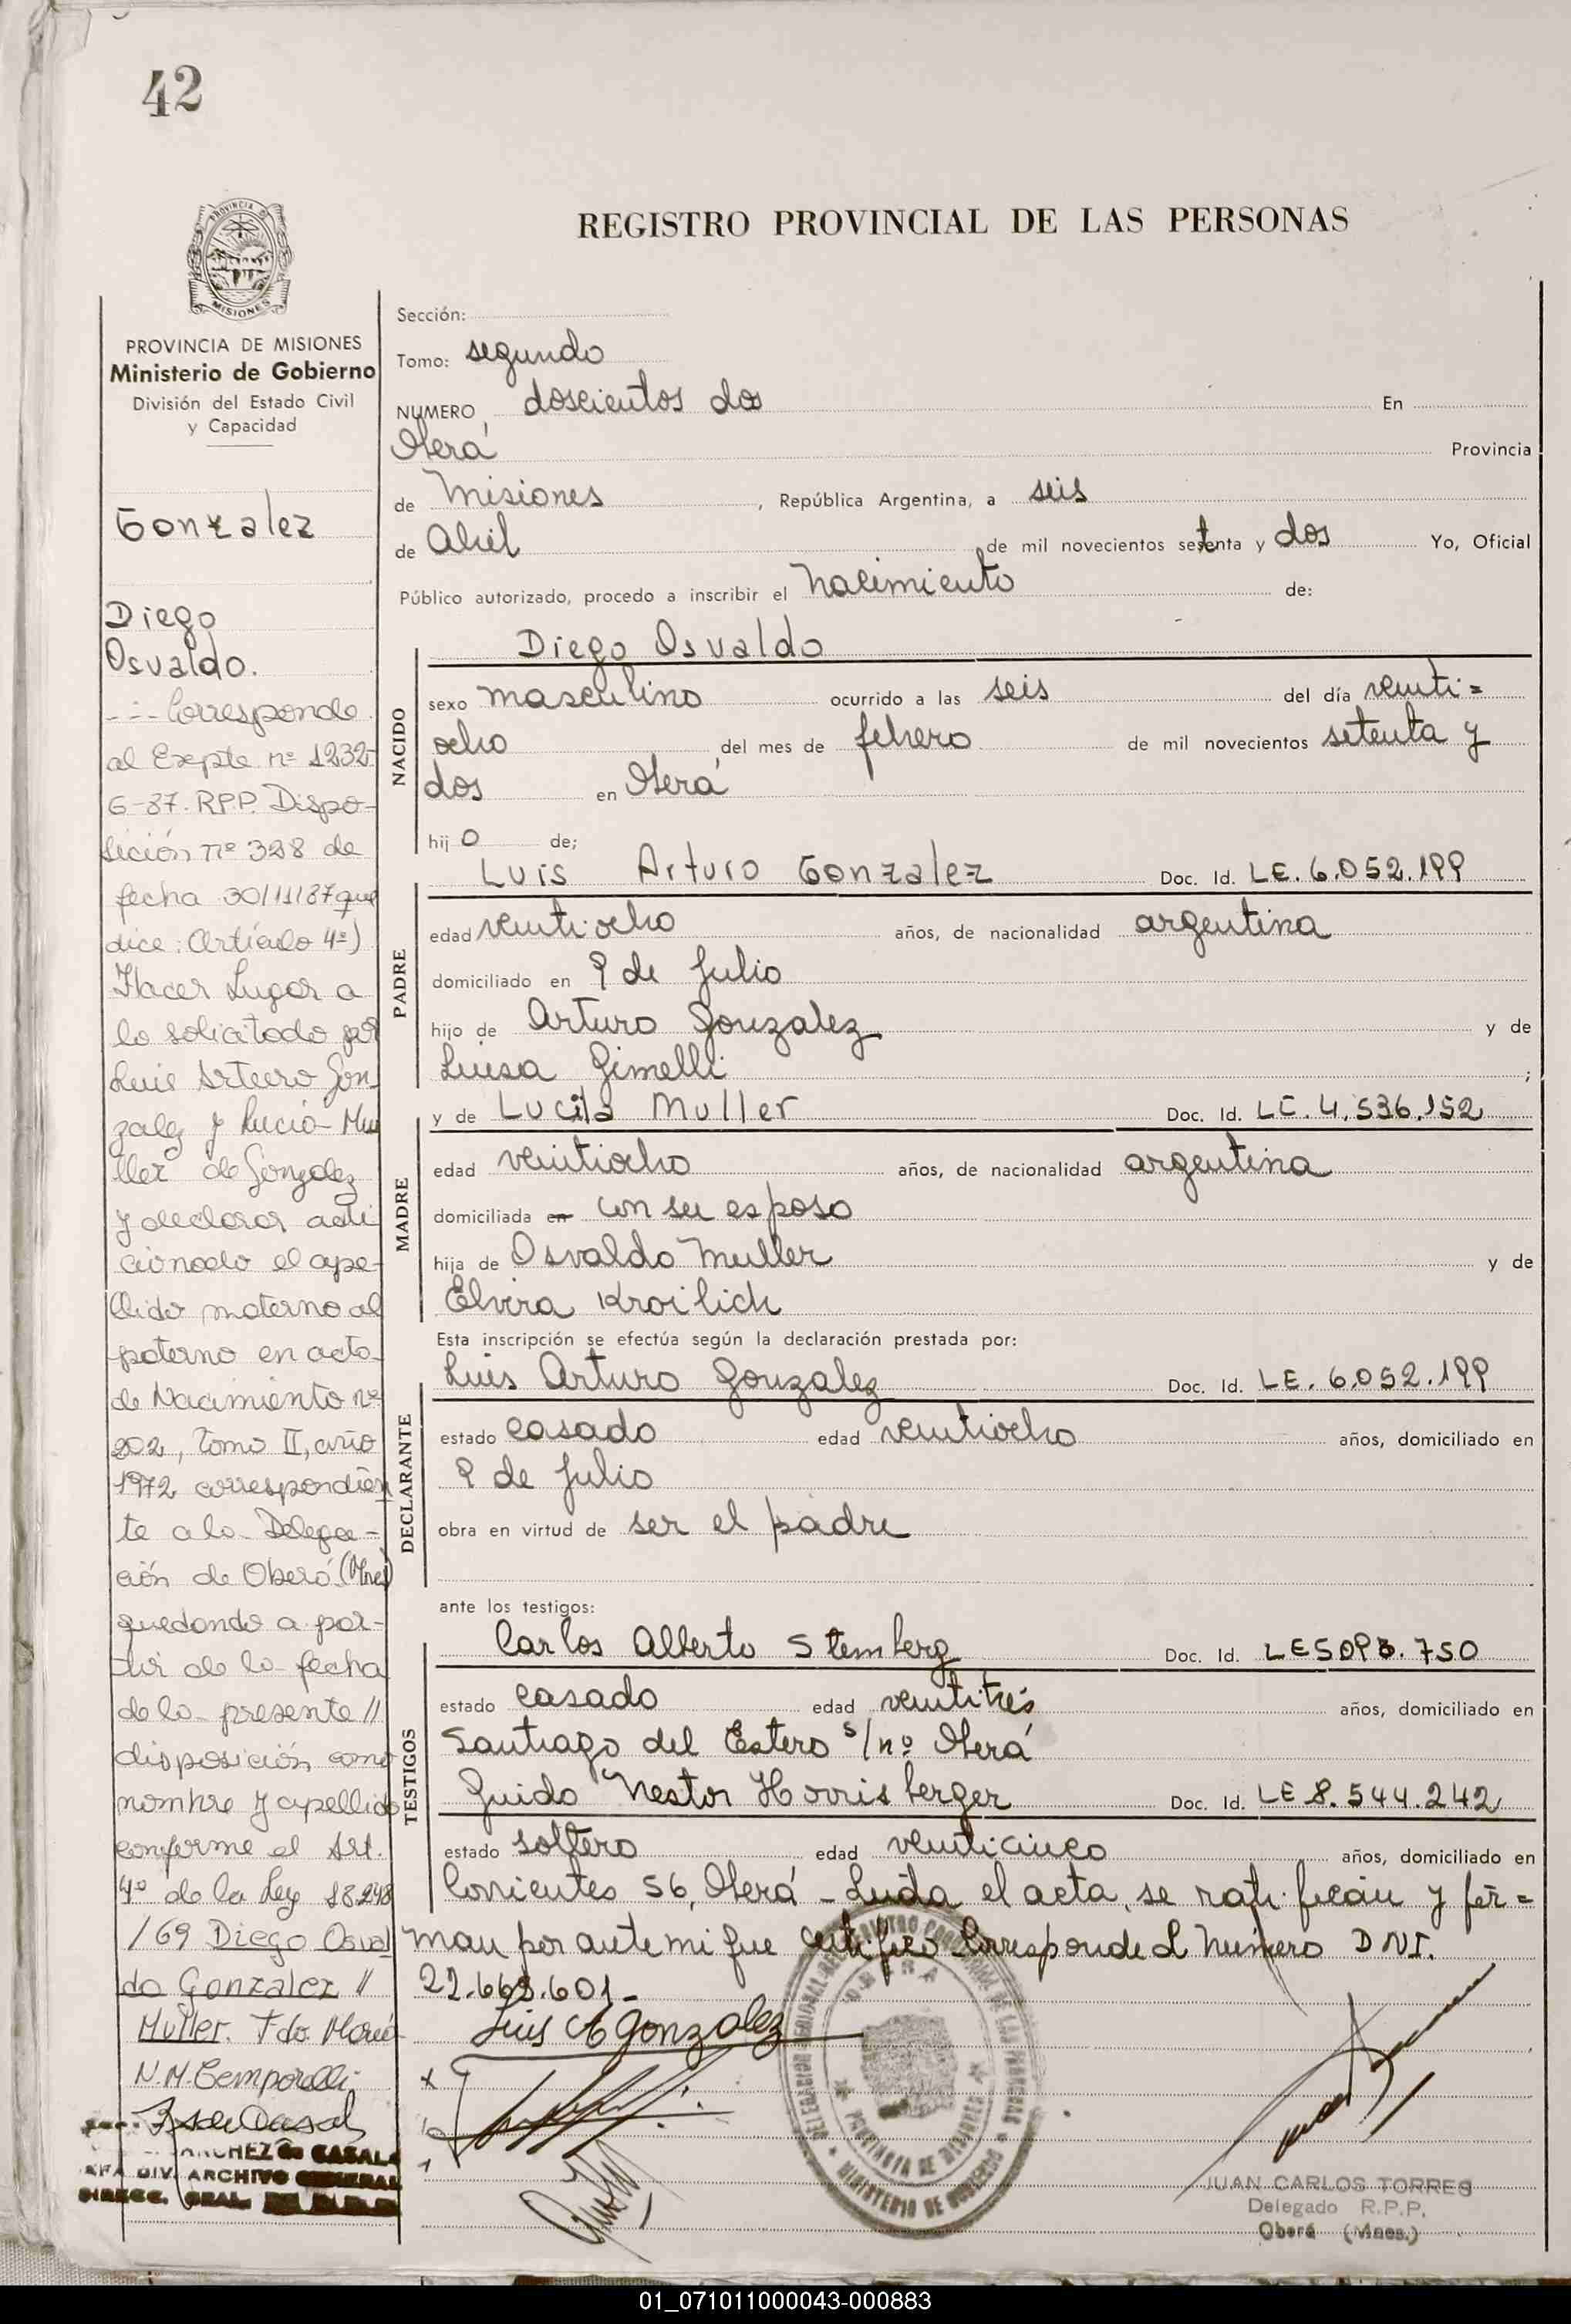 42
REGISTRO PROVINCIAL DE LAS PERSONAS
PROVINCIA DE MISIONES
Ministerio de Gobierno
División del Estado Civil
y Capacidad
Gonzalez
Diego
Osvaldo.
- : - Corresponde
al Expte nº 1232-
G-87. R.P.P. Dispo-
sición nº 328 de
fecha 30/11/87 que
dice: Artículo 4º)
Hacer Lugar a
lo solicitado por
Luis Arturo Gon
zalez y Lucia Mu
ller de Gonzalez
y declarar adi
cionado el ape-
llido materno al
paterno en acta
de Nacimiento nº
202, Tomo II, año
1972 correspondien
te a la Delega-
ción de Oberá (Mnes)
quedando a par-
tir de la fecha
de la presente //
disposición como
nombre y apellido
conforme el Art.
4º de la Ley 18.248
/69 Diego Osval
do Gonzalez //
Muller. Fdo. María
N.M. Cemporelli
SANCHEZ de CASAL
JEFA DIV. ARCHIVO GENERAL
DIRECC. GRAL.
Sección:
Tomo: segundo
NUMERO doscientos dos En
Oberá Provincia
de Misiones, República Argentina, a seis
de Abril de mil novecientos setenta y dos Yo, Oficial
Público autorizado, procedo a inscribir el nacimiento de:
NACIDO
Diego Osvaldo
sexo masculino ocurrido a las seis del día veinti=
ocho del mes de febrero de mil novecientos setenta y
dos en Oberá
hijo de;
Luis Arturo Gonzalez Doc. Id. LE. 6.052.199
PADRE
edad veintiocho años, de nacionalidad argentina
domiciliado en 9 de Julio
hijo de Arturo Gonzalez y de
Luisa Gimelli ;
y de Lucila Muller Doc. Id. LC. 4.536.152
MADRE
edad veintiocho años, de nacionalidad argentina
domiciliada en con su esposo
hija de Osvaldo Muller y de
Elvira Kroilich
Esta inscripción se efectúa según la declaración prestada por:
Luis Arturo Gonzalez Doc. Id. LE. 6.052.199
DECLARANTE
estado casado edad veintiocho años, domiciliado en
9 de Julio
obra en virtud de ser el padre
ante los testigos:
Carlos Alberto Stemberg Doc. Id. LE 5093.750
TESTIGOS
estado casado edad veintitrés años, domiciliado en
Santiago del Estero s/nº Oberá
Guido Nestor Horrisberger Doc. Id. LE 8.544.242
estado soltero edad veinticinco años, domiciliado en
Corrientes 56, Oberá - Leída el acta, se ratifican y fir=
man por ante mi que certifico Corresponde el Número DNI.
22.668.601-
Luis A Gonzalez
OBERA
PROVINCIA DE MISIONES
MINISTERIO DE GOBIERNO
JUAN CARLOS TORRES
Delegado R.P.P.
Oberá (Mnes.)
01_071011000043-000883